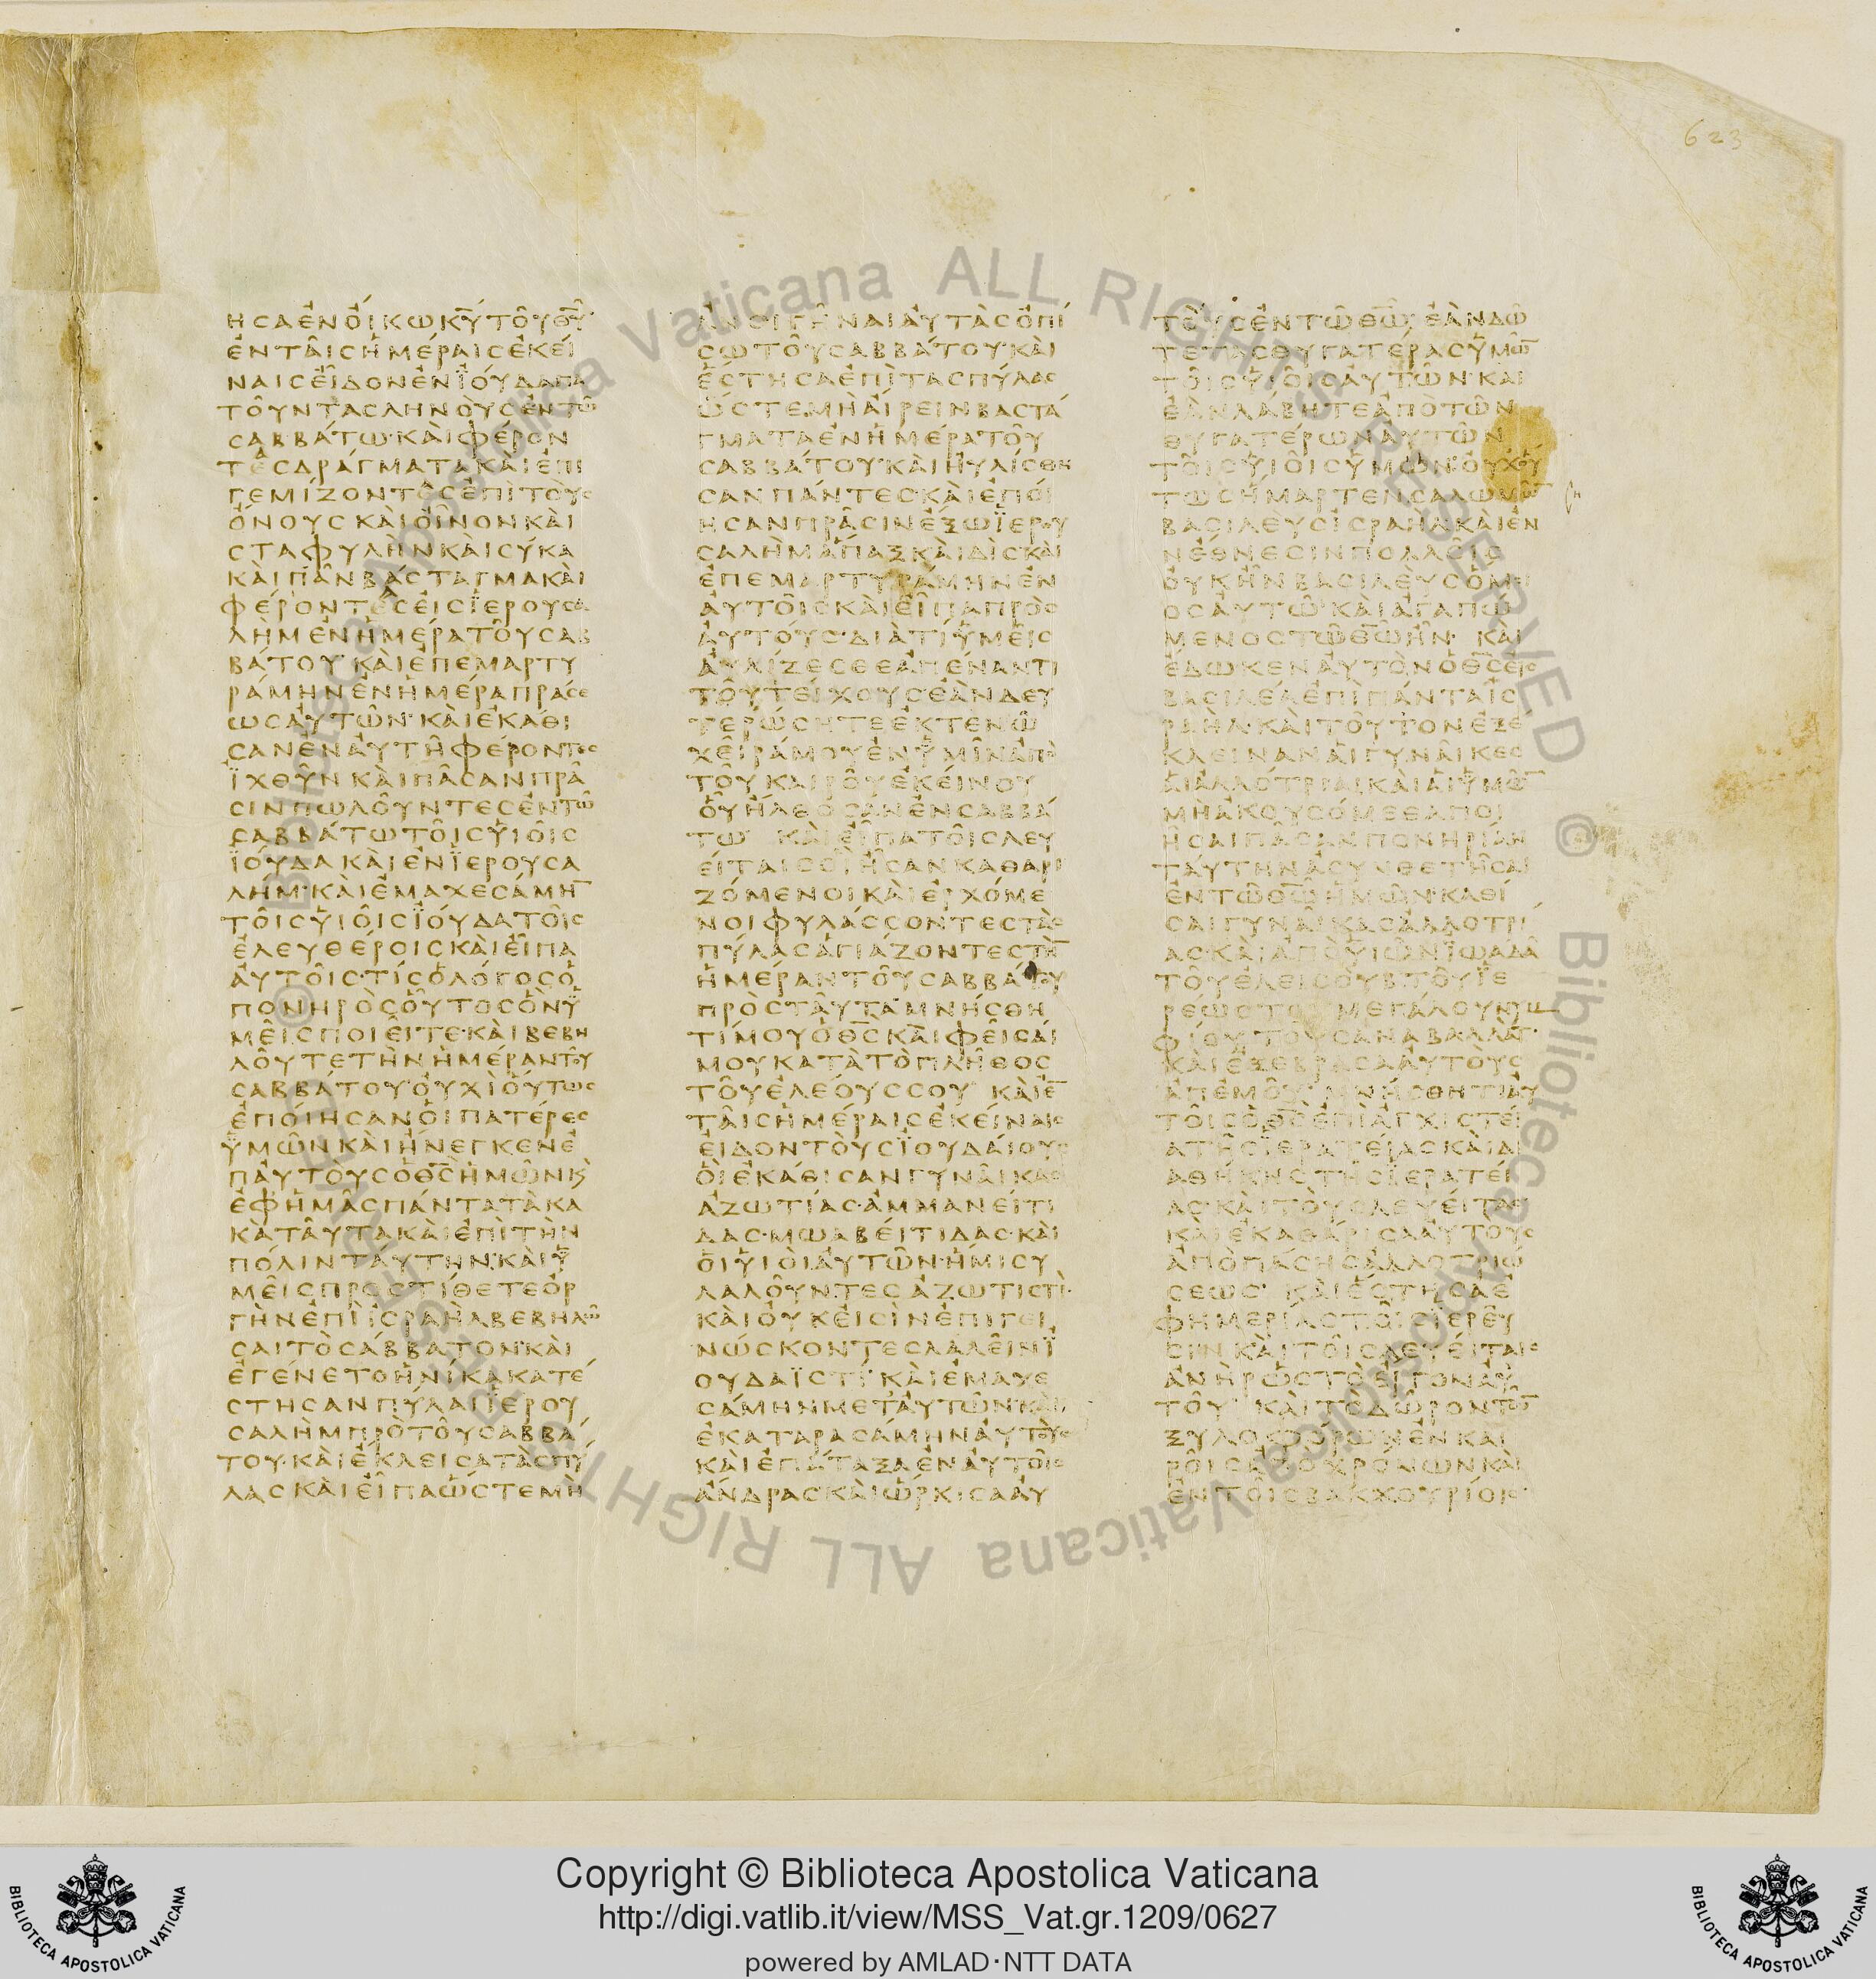 623
ΗϹΑΕΝΟΙΚΩΚ̅Υ̅ΤΟΥΘ̅Υ̅·
ΕΝΤΑΙϹΗΜΕΡΑΙϹΕΚΕΙ
ΝΑΙϹΕΙΔΟΝΕΝΪΟΥΔΑΠΑ
ΤΟΥΝΤΑϹΛΗΝΟΥϹΕΝΤΩ
ϹΑΒΒΑΤΩ·ΚΑΙΦΕΡΟΝ
ΤΕϹΔΡΑΓΜΑΤΑΚΑΙΕΠΙ
ΓΕΜΙΖΟΝΤΕϹΕΠΙΤΟΥϹ
ΟΝΟΥϹΚΑΙΟΙΝΟΝΚΑΙ
ϹΤΑΦΥΛΗΝΚΑΙϹΥΚΑ
ΚΑΙΠΑΝΒΑϹΤΑΓΜΑΚΑΙ
ΦΕΡΟΝΤΕϹΕΙϹΪΕΡΟΥϹΑ
ΛΗΜΕΝΗΜΕΡΑΤΟΥϹΑΒ
ΒΑΤΟΥ·ΚΑΙΕΠΕΜΑΡΤΥ
ΡΑΜΗΝΕΝΗΜΕΡΑΠΡΑϹΕ
ΩϹΑΥΤΩΝ·ΚΑΙΕΚΑΘΙ
ϹΑΝΕΝΑΥΤΗΦΕΡΟΝΤΕϹ
ΪΧΘΥΝΚΑΙΠΑϹΑΝΠΡΑ
ϹΙΝΠΩΛΟΥΝΤΕϹΕΝΤΩ
ϹΑΒΒΑΤΩΤΟΙϹΥΙΟΙϹ
ΪΟΥΔΑΚΑΙΕΝΪΕΡΟΥϹΑ
ΛΗΜ·ΚΑΙΕΜΑΧΕϹΑΜΗ̅
ΤΟΙϹΥΙΟΙϹΪΟΥΔΑΤΟΙϹ
ΕΛΕΥΘΕΡΟΙϹΚΑΙΕΙΠΑ
ΑΥΤΟΙϹ·ΤΙϹΟΛΟΓΟϹΟ
ΠΟΝΗΡΟϹΟΥΤΟϹΟΝΫ
ΜΕΙϹΠΟΙΕΙΤΕ·ΚΑΙΒΕΒΗ
ΛΟΥΤΕΤΗΝΗΜΕΡΑΝΤΟΥ
ϹΑΒΒΑΤΟΥ·ΟΥΧΙΟΥΤΩϹ
ΕΠΟΙΗϹΑΝΟΙΠΑΤΕΡΕϹ
ΫΜΩΝΚΑΙΗΝΕΓΚΕΝΕ
ΠΑΥΤΟΥϹΟΘ̅Ϲ̅ΗΜΩΝΚ
ΕΦΗΜΑϹΠΑΝΤΑΤΑΚΑ
ΚΑΤΑΥΤΑΚΑΙΕΠΙΤΗΝ
ΠΟΛΙΝΤΑΥΤΗΝ·ΚΑΙΫ
ΜΕΙϹΠΡΟϹΤΙΘΕΤΕΟΡ
ΓΗΝΕΠΙΪϹΡΑΗΛΒΕΒΗΛΩ
ϹΑΙΤΟϹΑΒΒΑΤΟΝ·ΚΑΙ
ΕΓΕΝΕΤΟΗΝΙΚΑΚΑΤΕ
ϹΤΗϹΑΝΠΥΛΑΙΪΕΡΟΥ
ϹΑΛΗΜΠΡΟΤΟΥϹΑΒΒΑ
ΤΟΥ·ΚΑΙΕΚΛΕΙϹΑΤΑϹΠΥ
ΛΑϹΚΑΙΕΙΠΑΩϹΤΕΜΗ
ΑΝΟΙΓΗΝΑΙΑΥΤΑϹΟΠΙ
ϹΩΤΟΥϹΑΒΒΑΤΟΥ·ΚΑΙ
ΕϹΤΗϹΑΕΠΙΤΑϹΠΥΛΑϹ
ΩϹΤΕΜΗΑΙΡΕΙΝΒΑϹΤΑ
ΓΜΑΤΑΕΝΗΜΕΡΑΤΟΥ
ϹΑΒΒΑΤΟΥ·ΚΑΙΗΥΛΙϹΘΗ
ϹΑΝΠΑΝΤΕϹ·ΚΑΙΕΠΟΙ
ΗϹΑΝΠΡΑϹΙΝΕΞΩΪΕΡΟΥ
ϹΑΛΗΜΑΠΑΞΚΑΙΔΙϹ·ΚΑΙ
ΕΠΕΜΑΡΤΥΡΑΜΗΝΕΝ
ΑΥΤΟΙϹΚΑΙΕΙΠΑΠΡΟϹ
ΑΥΤΟΥϹ·ΔΙΑΤΙΫΜΕΙϹ
ΑΥΛΙΖΕϹΘΕΑΠΕΝΑΝΤΙ
ΤΟΥΤΕΙΧΟΥϹΕΑΝΔΕΥ
ΤΕΡΩϹΗΤΕΕΚΤΕΝΩ
ΧΕΙΡΑΜΟΥΕΝΫΜΙΝΑΠΟ
ΤΟΥΚΑΙΡΟΥΕΚΕΙΝΟΥ
ΟΥΗΛΘΟϹΑΝΕΝϹΑΒΒΑ
ΤΩ ΚΑΙΕΙΠΑΤΟΙϹΛΕΥ
ΕΙΤΑΙϹΟΙΗϹΑΝΚΑΘΑΡΙ
ΖΟΜΕΝΟΙΚΑΙΕΡΧΟΜΕ
ΝΟΙΦΥΛΑϹϹΟΝΤΕϹΤΑϹ
ΠΥΛΑϹΑΓΙΑΖΟΝΤΕϹΤΗ̅
ΗΜΕΡΑΝΤΟΥϹΑΒΒΑΤΟΥ
ΠΡΟϹΤΑΥΤΑΜΝΗϹΘΗ
ΤΙΜΟΥΟΘ̅Ϲ̅ΚΑΙΦΕΙϹΑΙ
ΜΟΥΚΑΤΑΤΟΠΛΗΘΟϹ
ΤΟΥΕΛΕΟΥϹϹΟΥ ΚΑΙΕ̅
ΤΑΙϹΗΜΕΡΑΙϹΕΚΕΙΝΑΙϹ
ΕΙΔΟΝΤΟΥϹΪΟΥΔΑΙΟΥϹ
ΟΙΕΚΑΘΙϹΑΝΓΥΝΑΙΚΑϹ
ΑΖΩΤΙΑϹ·ΑΜΜΑΝΕΙΤΙ
ΔΑϹ·ΜΩΑΒΕΙΤΙΔΑϹ·ΚΑΙ
ΟΙΥΙΟΙΑΥΤΩΝ·ΗΜΙϹΥ
ΛΑΛΟΥΝΤΕϹΑΖΩΤΙϹΤΙ·
ΚΑΙΟΥΚΕΙϹΙΝΕΠΙΓΕΙ
ΝΩϹΚΟΝΤΕϹΛΑΛΕΙΝΪ
ΟΥΔΑΪϹΤΙ·ΚΑΙΕΜΑΧΕ
ϹΑΜΗΝΜΕΤΑΥΤΩΝ·ΚΑΙ
ΕΚΑΤΑΡΑϹΑΜΗΝΑΥΤΟΥϹ
ΚΑΙΕΠΑΤΑΞΑΕΝΑΥΤΟΙϹ
ΑΝΔΡΑϹ·ΚΑΙΩΡΚΙϹΑΑΥ
ΤΟΥϹΕΝΤΩΘ̅Ω̅· ΕΑΝΔΩ
ΤΕΤΑϹΘΥΓΑΤΕΡΑϹΫΜΩ̅
ΤΟΙϹΥΙΟΙϹΑΥΤΩΝ·ΚΑΙ
ΕΑΝΛΑΒΗΤΕΑΠΟΤΩΝ
ΘΥΓΑΤΕΡΩΝΑΥΤΩΝ
ΤΟΙϹΥΙΟΙϹΫΜΩΝ·ΟΥΧΟΥ
ΤΩϹΗΜΑΡΤΕΝϹΑΛΩΜΩ̅
ΒΑϹΙΛΕΥϹΙϹΡΑΗΛ·ΚΑΙΕΝ
ΝΕΘΝΕϹΙΝΠΟΛΛΟΙϹ
ΟΥΚΗΝΒΑϹΙΛΕΥϹΟΜΟΙ
ΟϹΑΥΤΩ·ΚΑΙΑΓΑΠΩ
ΜΕΝΟϹΤΩΘ̅Ω̅ΗΝ· ΚΑΙ
ΕΔΩΚΕΝΑΥΤΟΝΟΘ̅Ϲ̅ΕΙϹ
ΒΑϹΙΛΕΑΕΠΙΠΑΝΤΑΙϹ
ΡΑΗΛ·ΚΑΙΤΟΥΤΟΝΕΞΕ
ΚΛΕΙΝΑΝΑΙΓΥΝΑΙΚΕϹ
ΑΙΑΛΛΟΤΡΙΑΙ·ΚΑΙΑΙΫΜΩ̅
ΜΗΑΚΟΥϹΟΜΕΘΑΠΟΙ
ΗϹΑΙΠΑϹΑΝΠΟΝΗΡΙΑΝ
ΤΑΥΤΗΝΑϹΥΝΘΕΤΗϹΑΙ
ΕΝΤΩΘ̅Ω̅ΗΜΩΝ·ΚΑΘΙ
ϹΑΙΓΥΝΑΙΚΑϹΑΛΛΟΤΡΙ
ΑϹ·ΚΑΙΑΠΟΥΙΩΝΪΩΑΔΑ
ΤΟΥΕΛΕΙϹΟΥΒΤΟΥΪΕ
ΡΕΩϹΤΟΥΜΕΓΑΛΟΥΝΥΜ
ΦΙΟΥ
ΚΑΙΕΞΕΒΡΑϹΑΑΥΤΟΥϹ
ΑΠΕΜΟΥ· ΜΝΗϹΘΗΤΙΑΥ
ΤΟΙϹΟΘ̅Ϲ̅ΕΠΙΑΓΧΙϹΤΕΙ
ΑΤΗϹΪΕΡΑΤΕΙΑϹΚΑΙΔΙ
ΑΘΗΚΗϹΤΗϹΪΕΡΑΤΕΙ
ΑϹ·ΚΑΙΤΟΥϹΛΕΥΕΙΤΑϹ
ΚΑΙΕΚΑΘΑΡΙϹΑΑΥΤΟΥϹ
ΑΠΟΠΑϹΗϹΑΛΛΟΤΡΙΩ
ϹΕΩϹ· ΚΑΙΕϹΤΗϹΑΕ
ΦΗΜΕΡΙΑϹΤΟΙϹΪΕΡΕΥ
ϹΙΝΚΑΙΤΟΙϹΛΕΥΕΙΤΑΙϹ
ΑΝΗΡΩϹΤΟΕΡΓΟΝΑΥ
ΤΟΥ· ΚΑΙΤΟΔΩΡΟΝΤΩ̅
ΞΥΛΟΦΟΡΩΝΕΝΚΑΙ
ΡΟΙϹΑΠΟΧΡΟΝΩΝΚΑΙ
ΕΝΤΟΙϹΒΑΚΧΟΥΡΙΟΙϹ·
ALL RIGHTS RESERVED © Biblioteca Apostolica Vaticana
ALL RIGHTS RESERVED © Biblioteca Apostolica Vaticana
BIBLIOTECA APOSTOLICA VATICANA
Copyright © Biblioteca Apostolica Vaticana
http://digi.vatlib.it/view/MSS_Vat.gr.1209/0627
powered by AMLAD·NTT DATA
BIBLIOTECA APOSTOLICA VATICANA